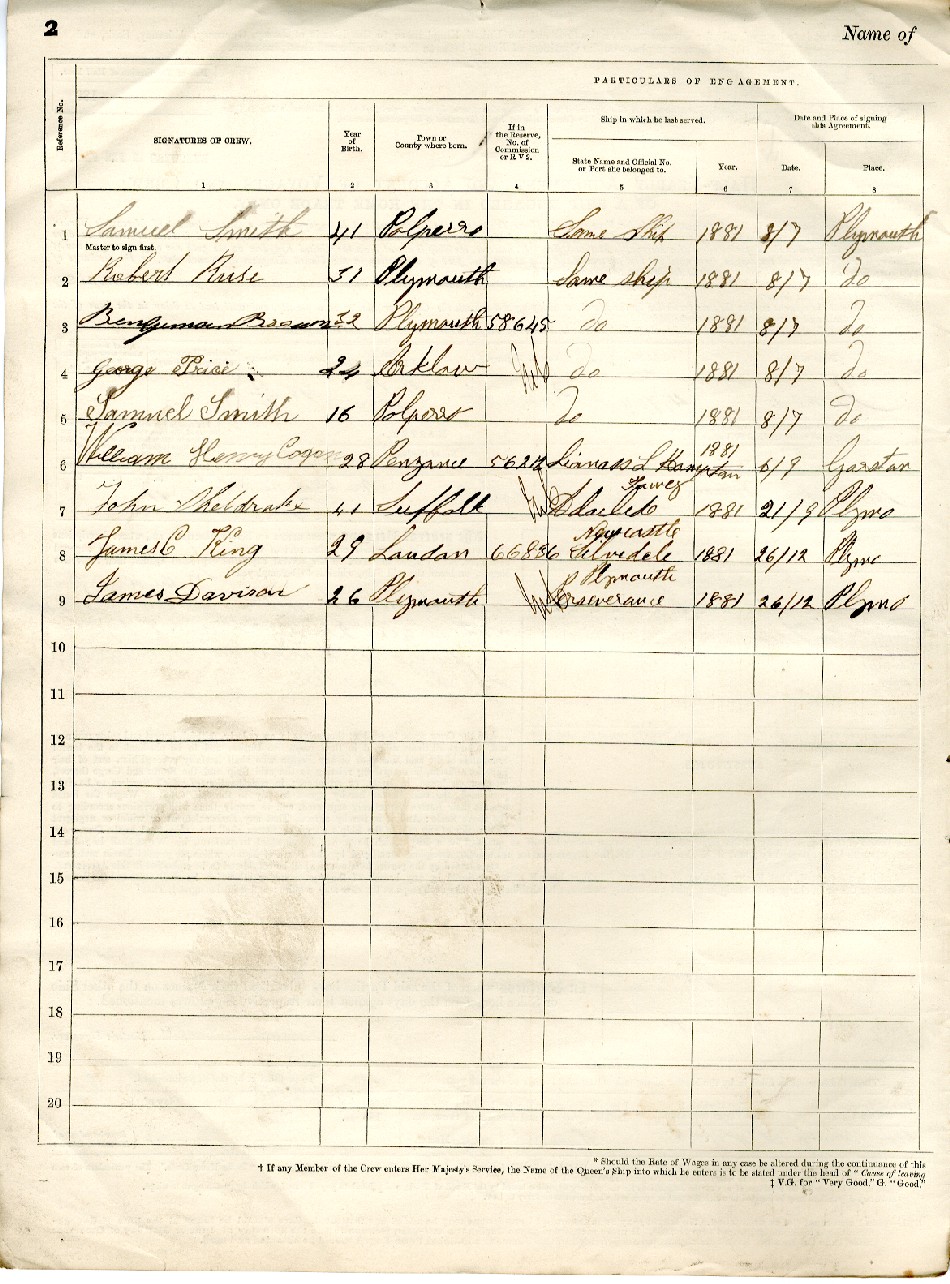 2
Name of
PARTICULARS OF ENGAGEMENT.
Reference No.
SIGNATURES OF CREW.
Year of Birth.
Town or County where born.
If in the Reserve, No. of Commission or R V 2.
Ship in which he last served.
Date and Place of signing this Agreement.
State Name and Official No. or Port she belonged to.
Year.
Date.
Place.
1 2 3 4 5 6 7 8
1 Samuel Smith 41 Polperro Same Ship 1881 8/7 Plymouth
Master to sign first.
2 Robert Ruse 31 Plymouth Same ship 1881 8/7 do
3 32 Plymouth 58645 do 1881 8/7 do
4 George Price 24 Arklow do 1881 8/7 do
5 Samuel Smith 16 Polperro do 1881 8/7 do
6 William Henry Cogan 28 Penzance 1881 6/9 Garston
7 John Sheldrake 41 Suffolk 1881 21/9 Plymo
Newcastle
8 James C King 29 London 66886 1881 26/12 Plymo
Plymouth
9 James Davison 26 Plymouth Perseverance 1881 26/12 Plymo
10
11
12
13
14
15
16
17
18
19
20
* Should the Rate of Wages in any case be altered during the continuance of this
† If any Member of the Crew enters Her Majesty's Service, the Name of the Queen's Ship into which he enters is to be stated under the head of "Cause of leaving
‡ V.G. for "Very Good," G. "Good,"